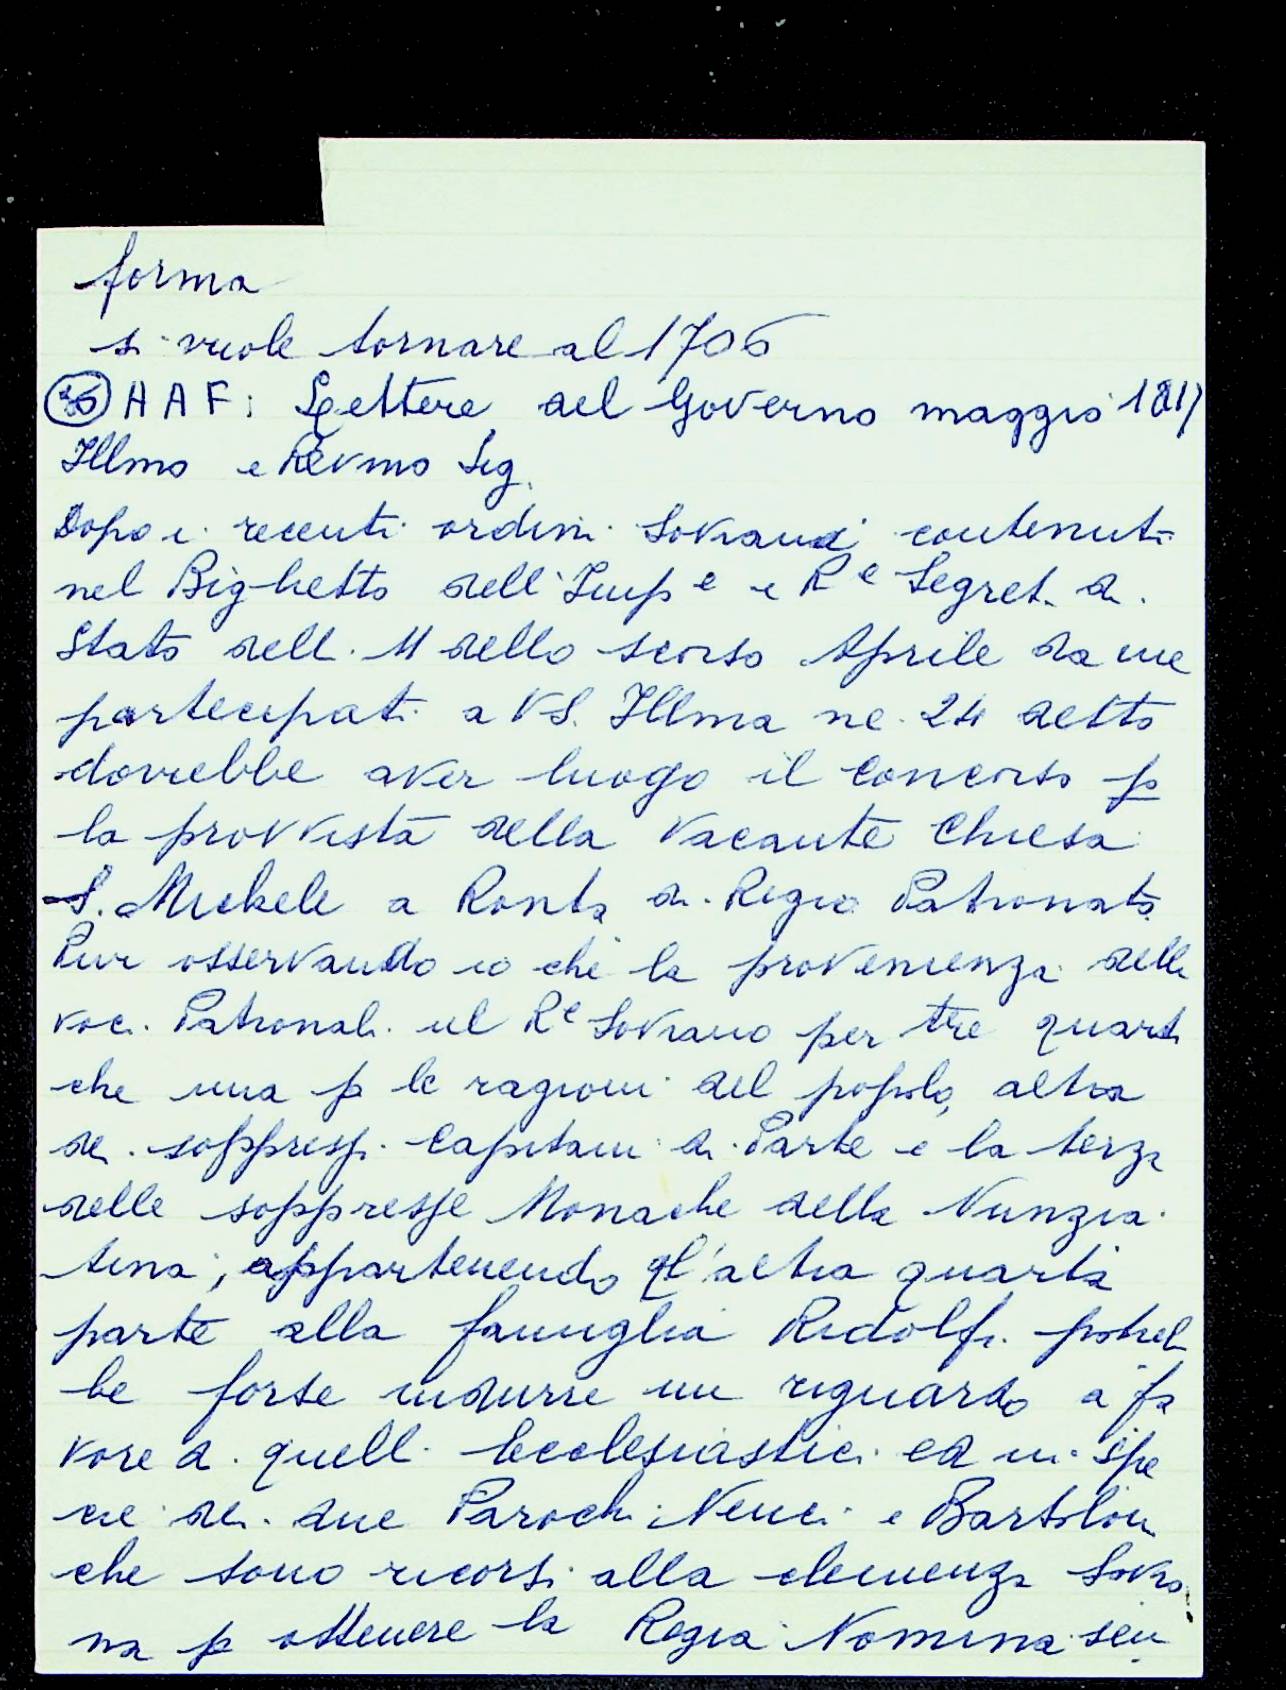 forma
si vuole tornare al 1706
36 A A F: Lettere del Governo maggio 1817
Illmo e Revmo Sig.
Dopo i recenti ordini Sovrani contenuti
nel Biglietto dell'Imp e e R e Segret. di
Stato dell. 11 dello scorso Aprile da me
partecipati a VS. Illma ne 24 detto
dovrebbe aver luogo il Concorso p
la provvista della vacante Chiesa
S. Michele a Ronta di Regio Patronato
Pur osservando io che la provenienza delle
voci Patronali al R e Sovrano per tre quarti
che una p le ragioni del popolo, altra
dei soppressi Capitani di Parte e la terza
delle soppresse Monache della Nunzia
tina, appartenendo l'altra quarta
parte alla famiglia Ridolfi potreb
be forse indurre un riguardo a fa
vore di quelli Ecclesiastici ed in spe
cie dei due Parochi Nenci e Bartolini
che sono ricorsi alla clemenza Sovra
na p ottenere la Regia Nomina sen